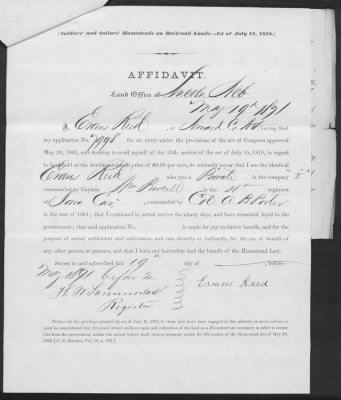 (Soldiers' and Sailors' Homesteads on Railroad Lands—Act of July 15, 1870.)
AFFIDAVIT.
Land Office at Lincoln Neb
May 19th 1871
I, Evan Reed of Seward Co Neb, having filed
my application No. 7998 for an entry under the provisions of the act of Congress approved
May 20, 1862, and desiring to avail myself of the 25th section of the act of July 15, 1870, in regard
to land held at the double minimum price of $2.50 per acre, do solemnly swear that I am the identical
Evan Reed who was a Private in the company "I"
commanded by Captain Wm Purcell in the 4th regiment
of Iowa Cav commanded by Col A B Porter
in the war of 1861; that I continued in actual service for ninety days, and have remained loyal to the
government; that said application No. is made for my exclusive benefit, and for the
purpose of actual settlement and cultivation, and not, directly or indirectly, for the use or benefit of
any other person or persons, and that I have not heretofore had the benefit of the Homestead Law.
Sworn to and subscribed this 19th day of , before
May 1871 before me
Evan Reed
Register
NOTE.—In the privilege granted by act of July 15, 1870, to those who have been engaged in the military or naval service, it
must be remembered that five years' actual residence upon and cultivation of the land as a Homestead are necessary in order to secure
title from the government, unless the actual settler shall elect to commute under the 8th section of the Homestead Act of May 20,
1862. [U. S. Statutes, Vol. 12, p. 392.]